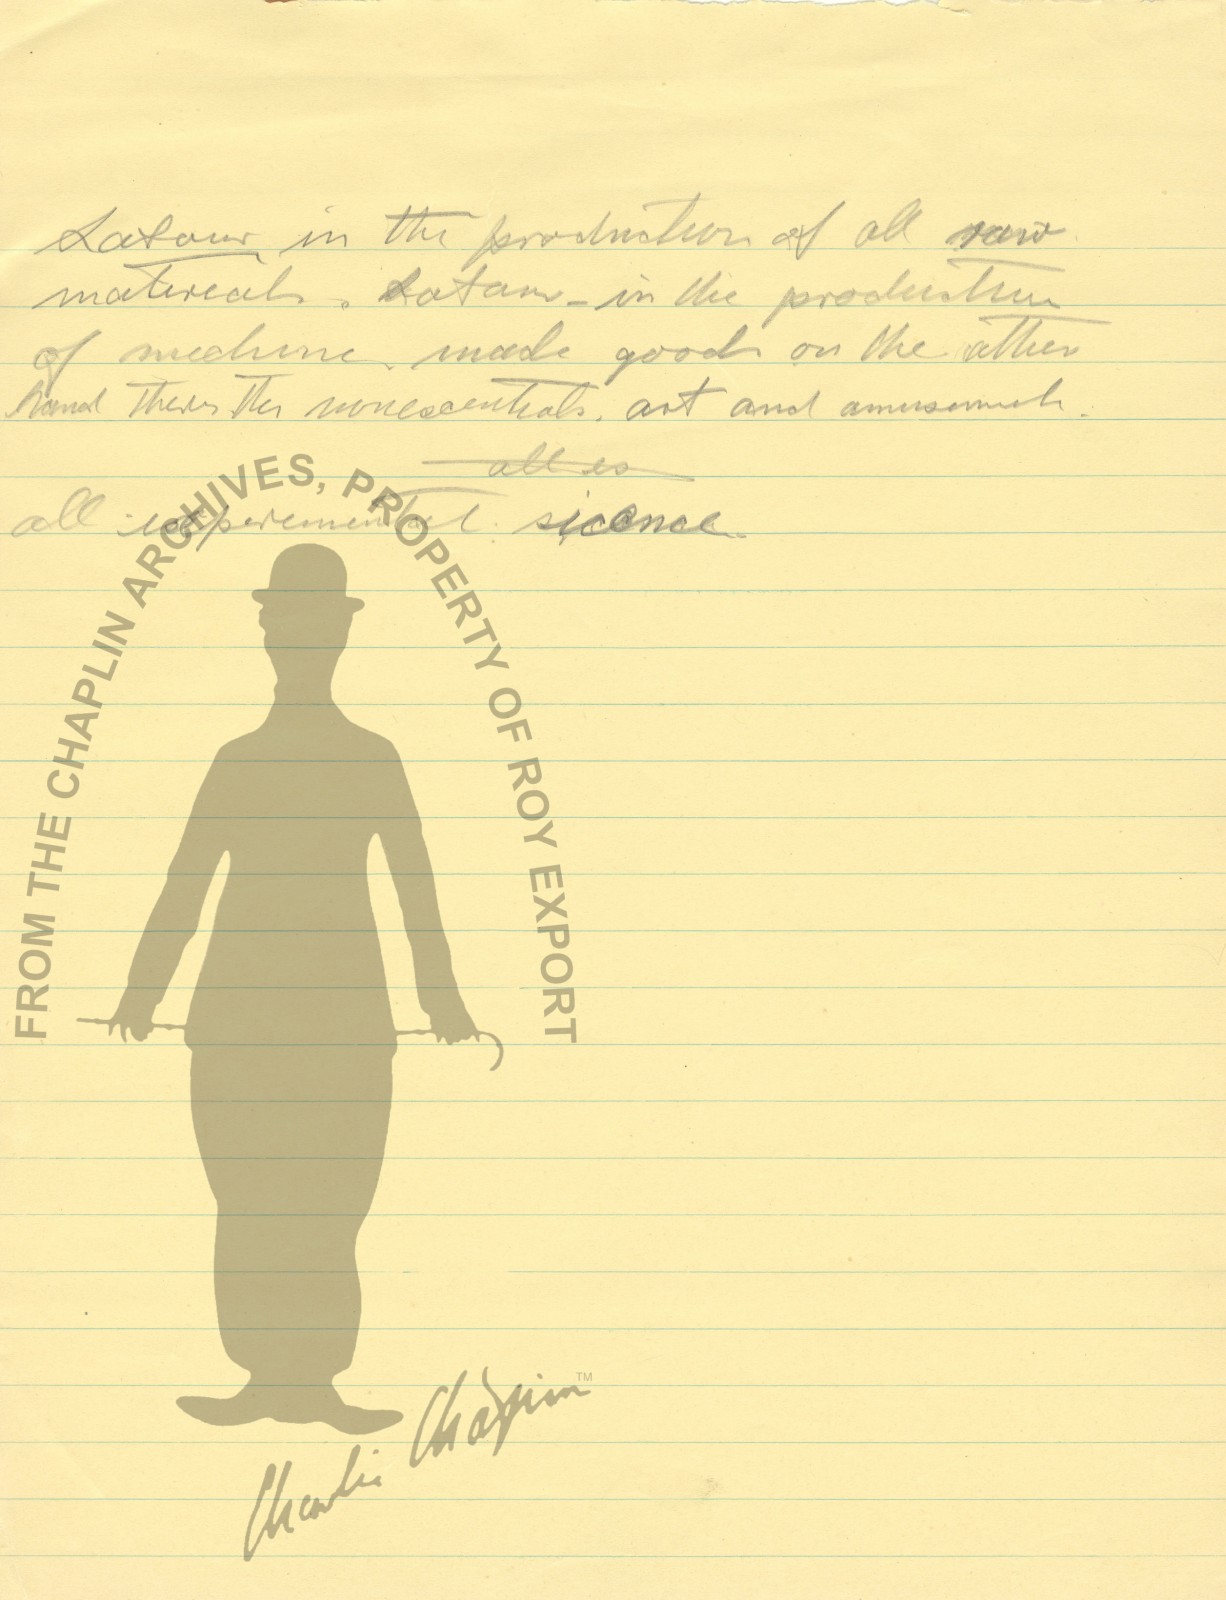 Labour in the production of all raw
materieals. Labour - in the production
of mechine made goods on the other
hand theres the nonescentials. art and amusements.
all es
all experimental sicence
FROM THE CHAPLIN ARCHIVES, PROPERTY OF ROY EXPORT
Charlie Chaplin TM